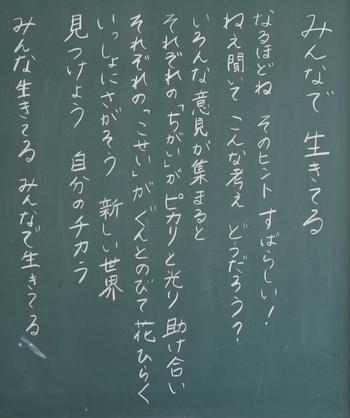 みんなで 生きてる
なるほどね そのヒント すばらしい!
ねえ聞いて こんな考え どうだろう?
いろんな意見が集まると
それぞれの「ちがい」がピカリと光り 助け合い
それぞれの「こせい」がぐんとのびて 花ひらく
いっしょにさがそう 新しい世界
見つけよう 自分のチカラ
みんな生きてる みんなで生きてる